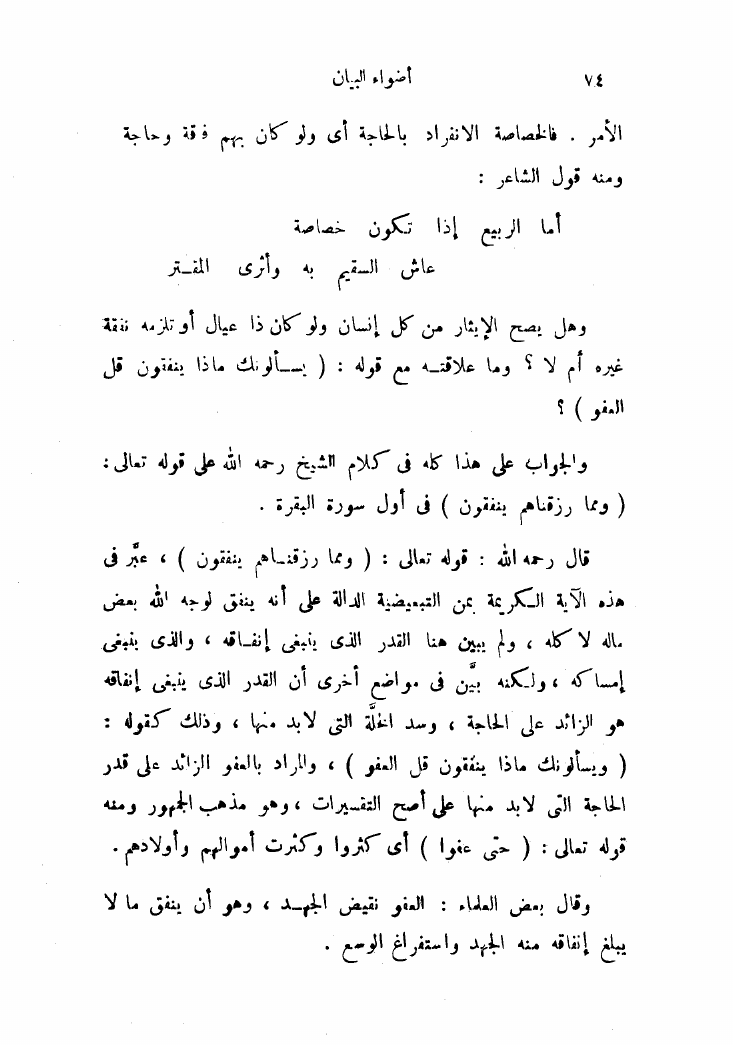 ٧٤ أضواء البيان
الأمر . فالخصاصة الانفراد بالحاجة أى ولو كان بهم فاقة وحاجة
ومنه قول الشاعر :
أما الربيع إذا تكون خصاصة
عاش السقيم به وأثرى المقتر
وهل يصح الإيثار من كل إنسان ولو كان ذا عيال أو تلزمه نفقة
غيره أم لا ؟ وما علاقته مع قوله : ( يسألونك ماذا ينفقون قل
العفو ) ؟
والجواب على هذا كله فى كلام الشيخ رحمه الله على قوله تعالى :
( ومما رزقناهم ينفقون ) فى أول سورة البقرة .
قال رحمه الله : قوله تعالى : ( ومما رزقناهم ينفقون ) ، عبَّر فى
هذه الآية الكريمة بمن التبعيضية الدالة على أنه ينفق لوجه الله بعض
ماله لا كله ، ولم يبين هنا القدر الذى ينبغى إنفاقه ، والذى ينبغى
إمساكه ، ولكنه بيَّن فى مواضع أخرى أن القدر الذى ينبغى إنفاقه
هو الزائد على الحاجة ، وسد الخلَّة التى لابد منها ، وذلك كقوله :
( ويسألونك ماذا ينفقون قل العفو ) ، والمراد بالعفو الزائد على قدر
الحاجة التى لابد منها على أصح التفسيرات ، وهو مذهب الجمهور ومنه
قوله تعالى : ( حتى عفوا ) أى كثروا وكثرت أموالهم وأولادهم .
وقال بعض العلماء : العفو نقيض الجهد ، وهو أن ينفق ما لا
يبلغ إنفاقه منه الجهد واستفراغ الوسع .